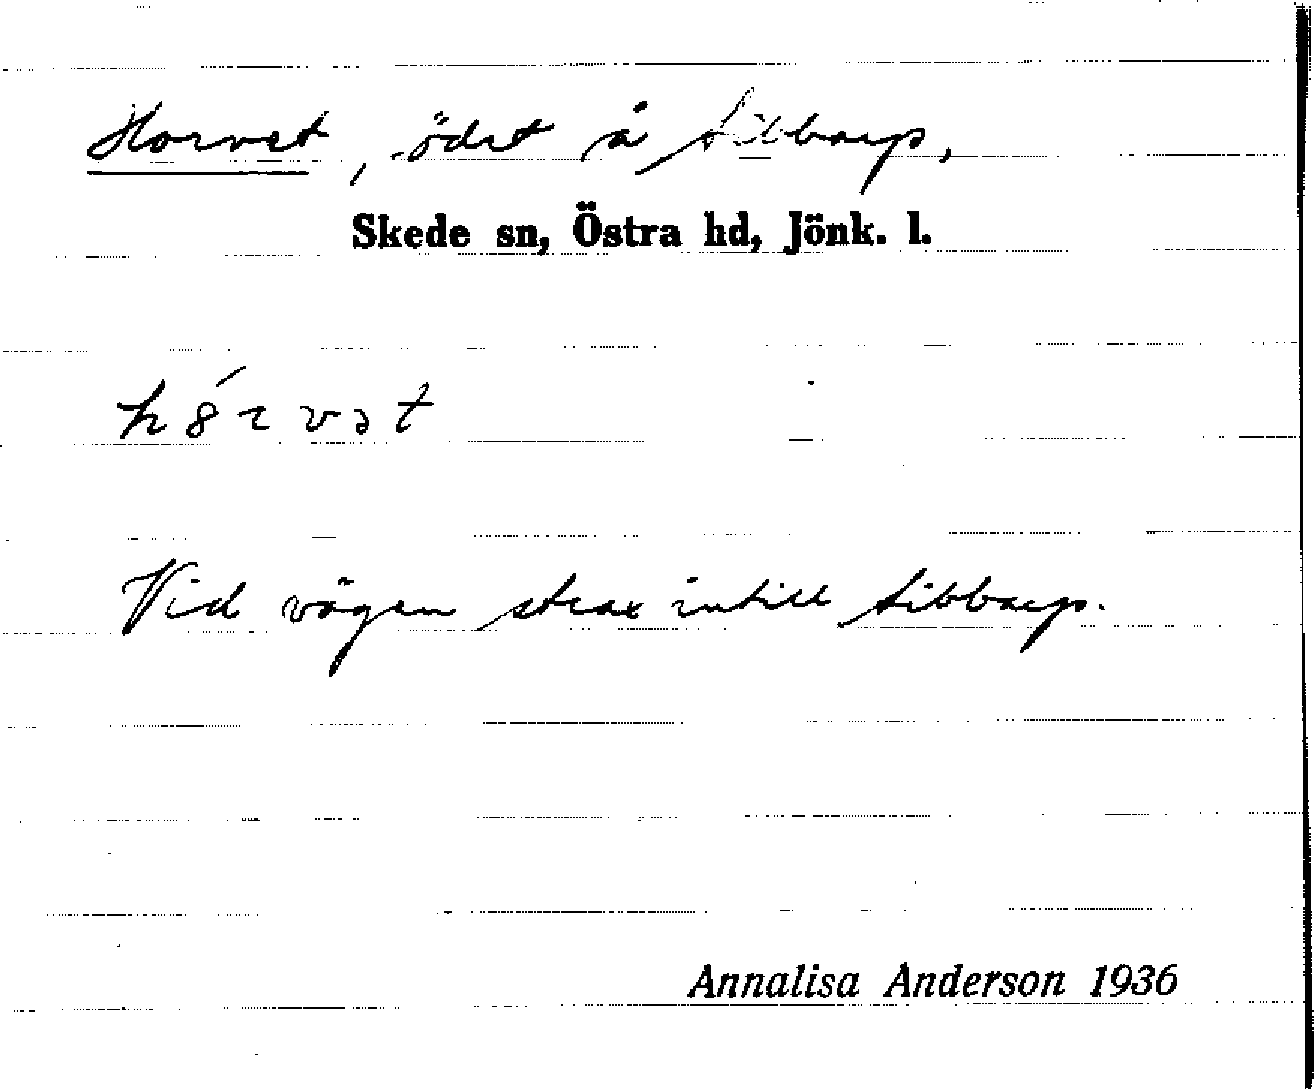 Horvet, ödet å Sibbarp,
Skede sn, Östra hd, Jönk. l.
h8́rvət
Vid vägen strax intill Sibbarp.
Annalisa Anderson 1936